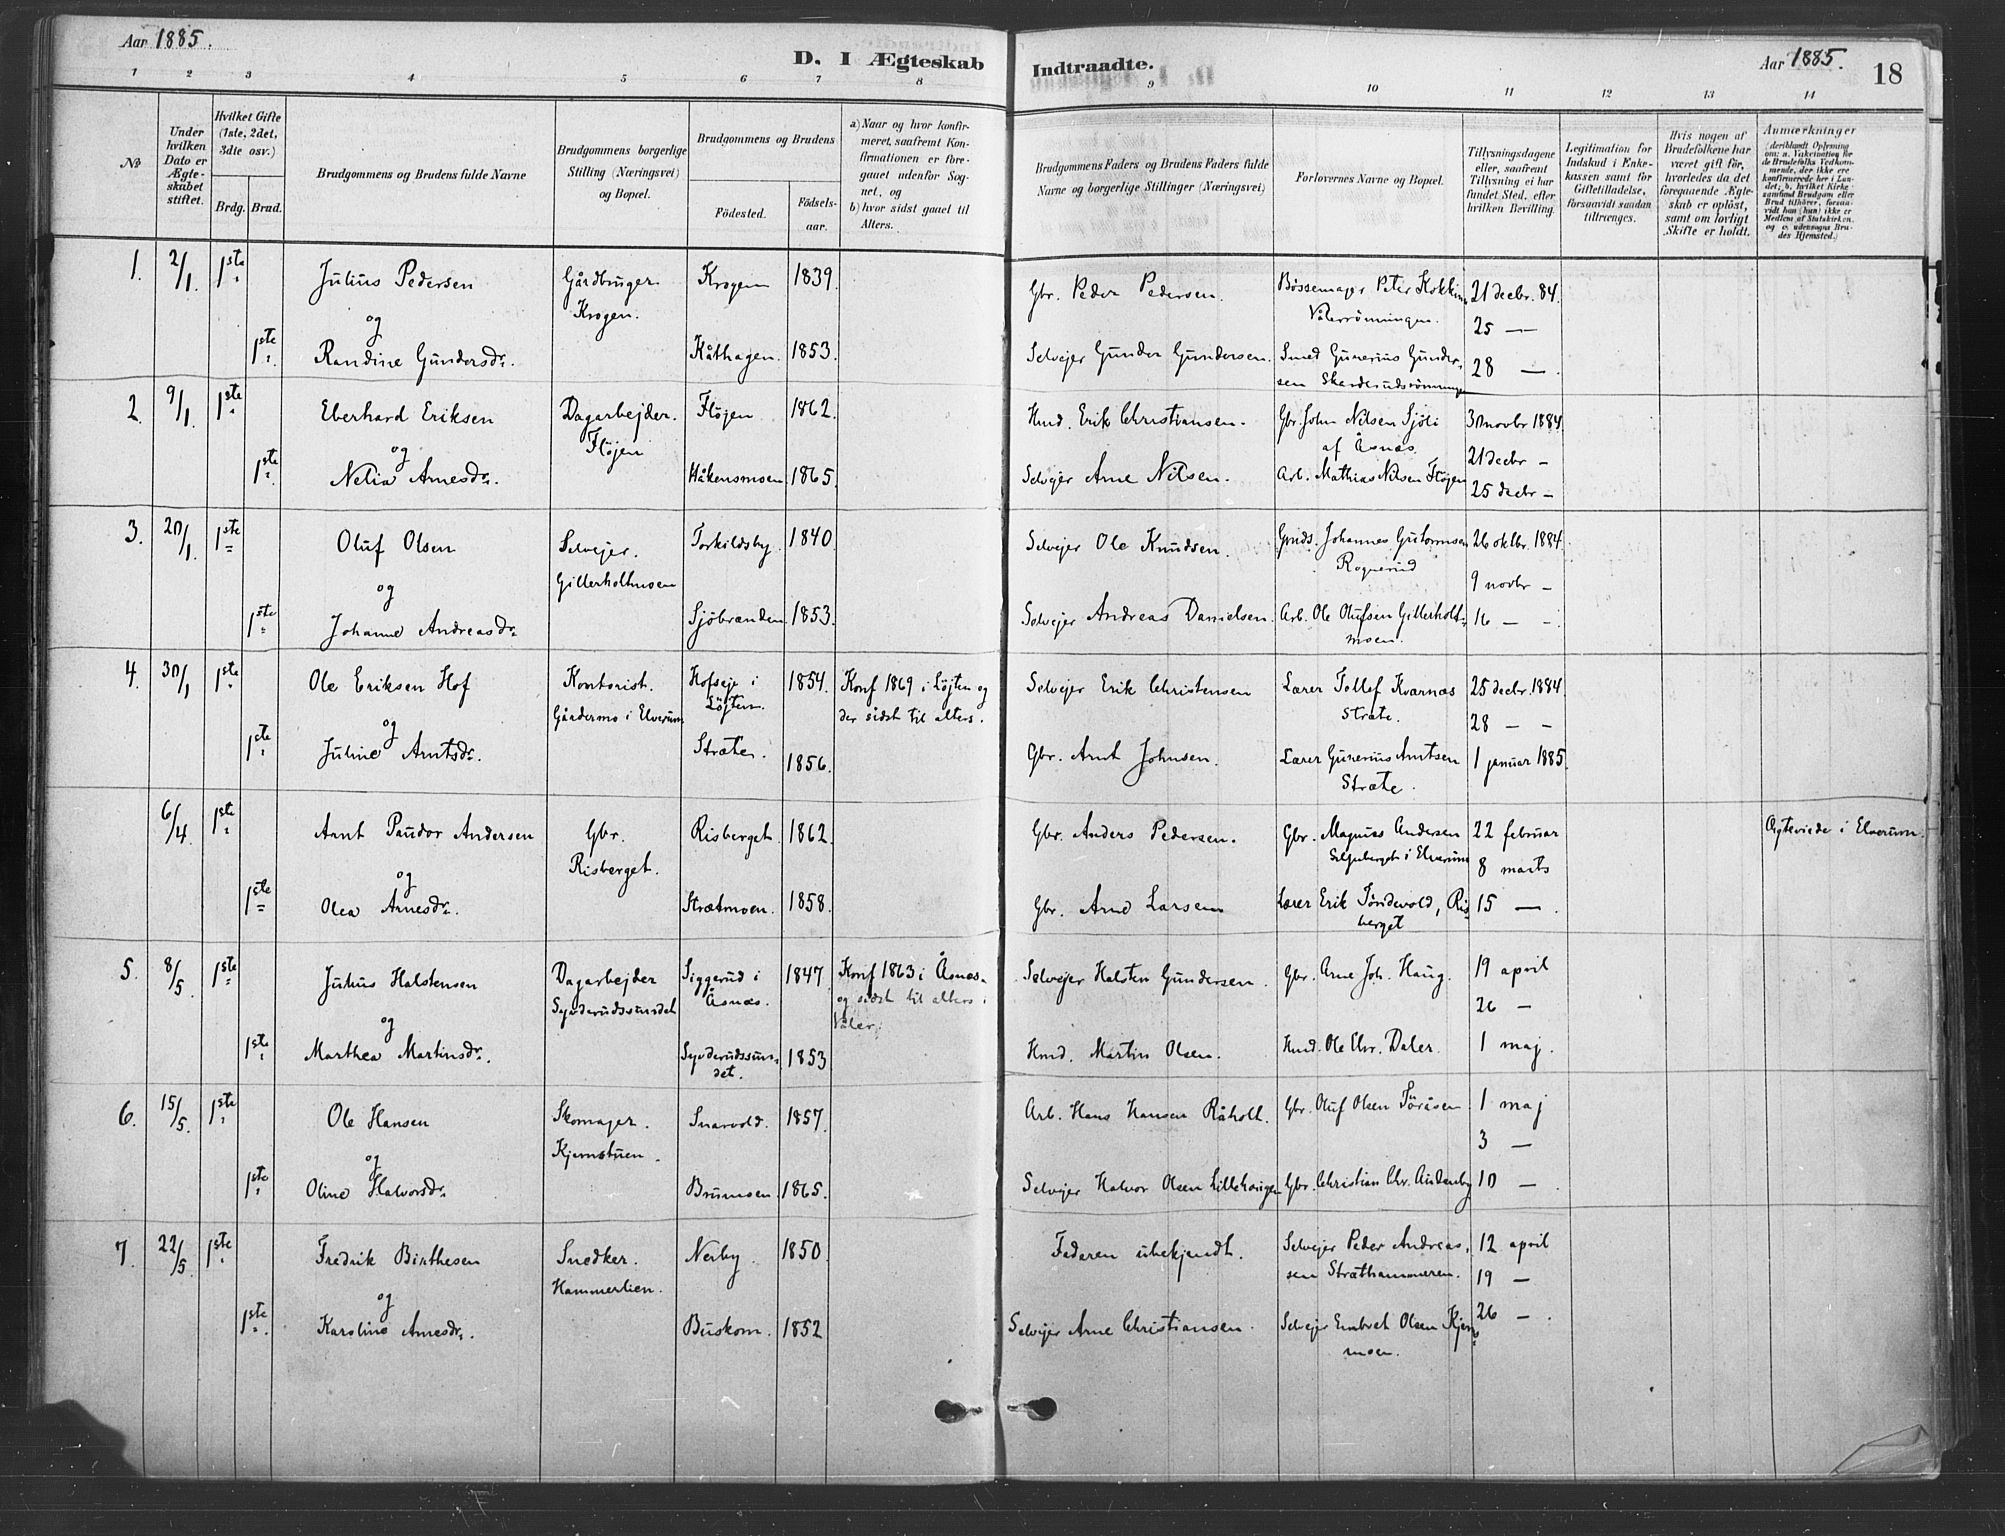 Aar 1885.
D. I Ægteskab Indtraadte.
Aar 1885.
18
1 2 3 4 5 6 7 8 9 10 11 12 13 14
No
Under hvilken Dato er Ægteskabet stiftet.
Hvilket Gifte (1ste, 2det, 3die osv.)
Brdg. Brud.
Brudgommens og Brudens fulde Navne
Brudgommens borgerlige Stilling (Næringsvei) og Bopæl.
Brudgommens og Brudens
Fødested.
Fødselsaar.
a) Naar og hvor konfirmeret, saafremt Konfirmationen er foregaaet udenfor Sognet, og
b) hvor sidst gaaet til Alters.
Brudgommens Faders og Brudens Faders fulde Navne og borgerlige Stillinger (Næringsvei)
Forlovernes Navne og Bopæl.
Tillysningsdagene eller, saafremt Tillysning ei har fundet Sted, efter hvilken Bevilling.
Legitimation for Indskud i Enkekassen samt for Giftetilladelse, forsaavidt saadan tiltrænges.
Hvis nogen af Brudefolkene har været gift før, hvorledes da det foregaaende Ægteskab er opløst, samt om lovligt Skifte er holdt.
Anmærkninger (deriblandt Oplysning om: a. Vakcination for de Brudefolks Vedkommende, der ikke ere konfirmerede her i Landet; b. hvilket Kirkesamfund Brudgom eller Brud tilhører, forsaavidt han (hun) ikke er Medlem af Statskirken, og c. udensogns Brudes Hjemsted.)
1. 2/1. 1ste Julius Pedersen Gårdbruger Krogen 1839. Gbr. Peder Pedersen. Bøssemager Peter Kokkin 21 decbr. 84.
og Krogen. Vålerrønningen. 25 —
1ste Randine Gundersdr. Kåthagen. 1853. Selvejer Gunder Gundersen. Smed Gunerius Gunder- 28 —.
sen Skarderudsrønningen
2. 9/1. 1ste Eberhard Eriksen Dagarbejder. Fløjen 1862. Hmd. Erik Christiansen. Gbr. John Nilsen Sjøli 30 novbr 1884.
og Fløjen af Åsnæs. 21 decbr —
1ste Nelia Arnesdr. Håkensmoen 1865. Selvejer Arne Nilsen. Arb. Mathias Nilsen Fløjen 25 decbr —
3. 20/1. 1ste Oluf Olsen Selvejer. Torkildsby. 1840 Selvejer Ole Knudsen. Gmds. Johannes Gutormsen 26 oktbr. 1884.
og Gillerholtmoen Rognerud 9 novbr —
1ste Johanne Andreasdr. Sjøbranden 1853. Selvejer Andreas Danielsen. Arb. Ole Olufsen Gillerholt- 16 — —.
moen.
4. 30/1 1ste Ole Eriksen Hof Kontorist. Hofseje i Løjten. 1854. Konf 1869 i Løjten og Selvejer Erik Christensen Lærer Tollef Kvarnæs 25 decbr. 1884.
og Gårdermo i Elverum der sidst til alters. Stræte. 28 — —
1ste Juline Arntsdr. Stræte. 1856. Gbr. Arnt Johnsen. Lærer Gunerius Arntsen 1 januar 1885.
Stræte.
6/4. 1ste Arnt Paudor Andersen Gbr. Risberget 1862. Gbr. Anders Pedersen. Gbr. Magnus Andersen 22 februar Ægteviede i Elverum.
og Risberget. i Elverum 8 marts
1ste Olea Arnesdr. Strætmoen. 1858. Gbr. Arne Larsen Lærer Erik Tøndevold, Ris- 15 —.
berget
5. 8/5. 1ste Julius Halstensen Dagarbejder Siggerud i Åsnæs. 1847. Konf 1863 i Åsnæs Selvejer Halsten Gundersen. Gbr. Arne Joh. Haug. 19 april
og Synderudssundet og sidst til alters i Våler. 26 —
1ste Marthea Martinsdr. Synderudssun- det. 1853 Hmd. Martin Olsen. Hmd. Ole Elvr. Daler. 1 maj.
6. 15/5. 1ste Ole Hansen Skomager. Snarvold. 1857. Arb. Hans Hansen Råholt. Gbr. Oluf Olsen Toråsen 1 maj
og Kjernstuen. 3 —
1ste Oline Halvorsdr. Brumoen 1865. Selvejer Halvor Olsen Lillehaugen Gbr. Christian Chr. Audenby 10 —.
7. 22/5. 1ste Fredrik Birthesen Snedker. Nerby. 1850. Faderen ubekjendt. Selvejer Peder Andreas- 12 april
og Hammerlien. sen Stræthammeren. 19 —
1ste Karoline Arnesdr. Buskom. 1852 Selvejer Arne Christiansen. Selvejer Embret Olsen Kjern- 26 —.
moen.